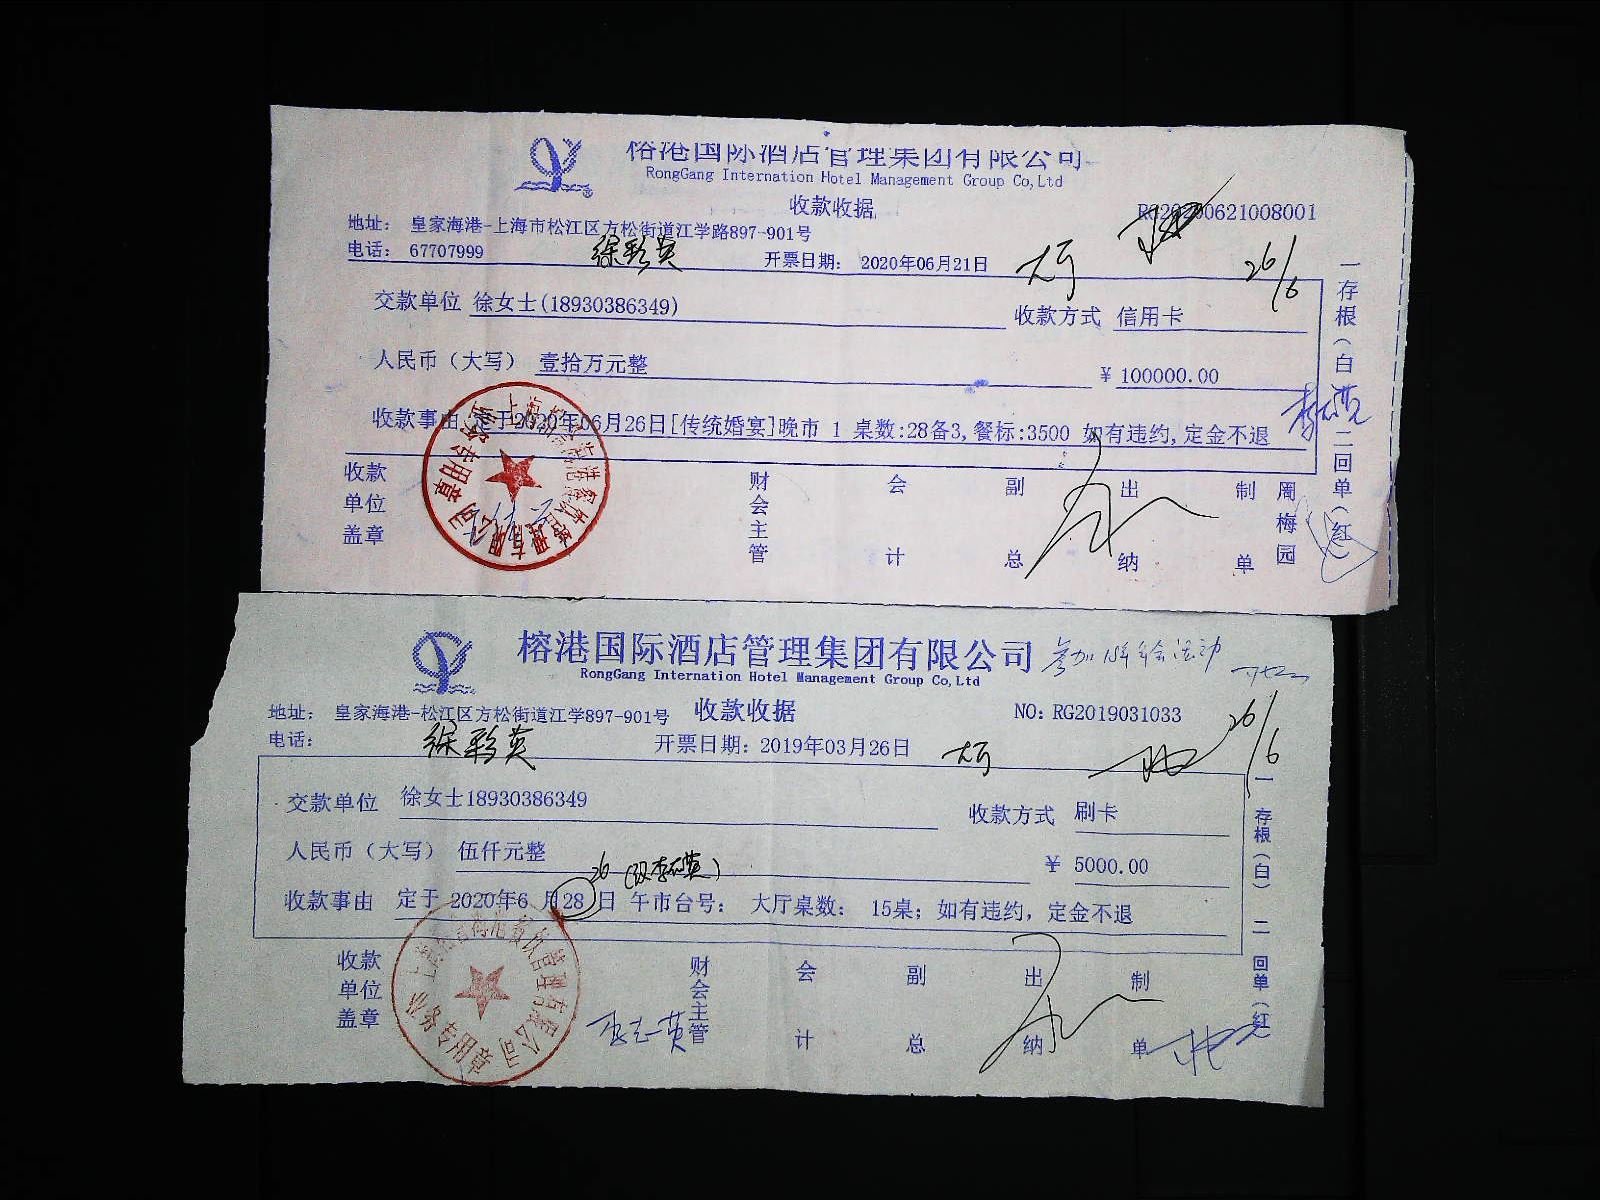 榕港国际酒店管理集团有限公司
RongGang Internation Hotel Management Group Co,Ltd
收款收据
地址： 皇家海港-上海市松江区方松街道江学路897-901号
电话： 67707999 徐彩英 开票日期： 2020年06月21日 大厅 26/6
交款单位 徐女士(18930386349) 收款方式 信用卡
人民币（大写） 壹拾万元整 ￥ 100000.00
收款事由 定于2020年06月26日[传统婚宴]晚市 1 桌数:28备3,餐标:3500 如有违约,定金不退
收款单位盖章 财会主管 会计 副总 出纳 制单 周梅园
一存根（白） 二回单（红）
榕港国际酒店管理集团有限公司
RongGang Internation Hotel Management Group Co,Ltd
地址： 皇家海港-松江区方松街道江学897-901号 收款收据 NO: RG2019031033
电话： 徐彩英 开票日期： 2019年03月26日 大厅 26/6
交款单位 徐女士18930386349 收款方式 刷卡
人民币（大写） 伍仟元整 ￥ 5000.00
26
收款事由 定于 2020年6 月 28 日 午市台号： 大厅桌数： 15桌；如有违约，定金不退
收款单位盖章 财会主管 会计 副总 出纳 制单
一存根（白） 二回单（红）
业务专用章